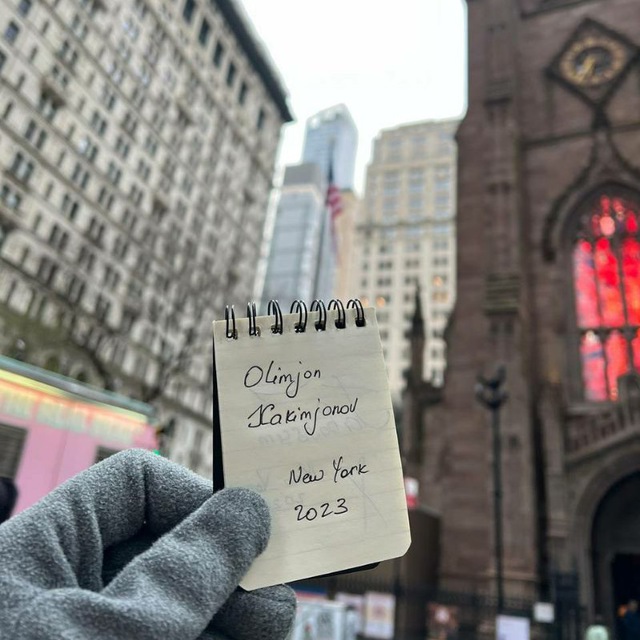 Olimjon
Xakimjonov
New York
2023